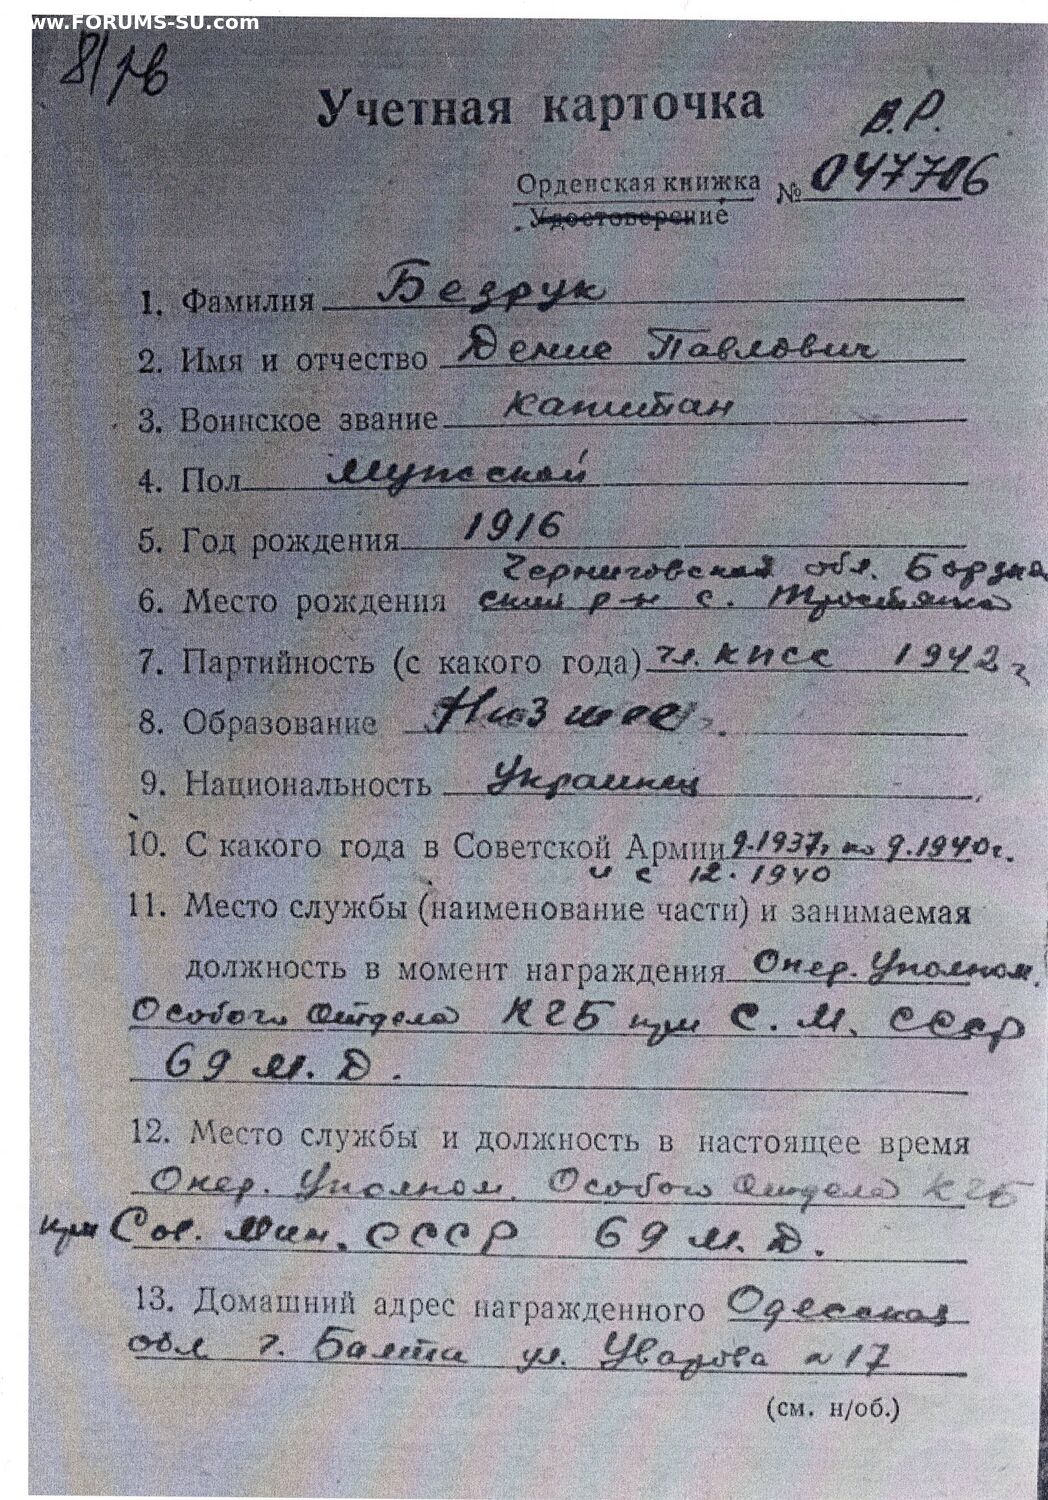 www.FORUMS-SU.com
Учетная карточка
В.Р.
Орденская книжка № 047706
Удостоверение
1. Фамилия Безрук
2. Имя и отчество Денис Павлович
3. Воинское звание капитан
4. Пол мужской
5. Год рождения 1916
Черниговской обл. Борзнян
6. Место рождения ский р-н с.
7. Партийность (с какого года) чл. КПСС 1942 г
8. Образование Низшее
9. Национальность Украинец
10. С какого года в Советской Армии 9.1937г по 9.1940г.
и с 12.1940
11. Место службы (наименование части) и занимаемая
должность в момент награждения Опер. Уполном.
Особого Отдела КГБ при С. М. СССР
69 М. Д.
12. Место службы и должность в настоящее время
Опер. Уполном. Особого Отдела КГБ
при Сов. Мин. СССР 69 М. Д.
13. Домашний адрес награжденного Одесская
обл г. Балта ул. Уварова № 17
(см. н/об.)